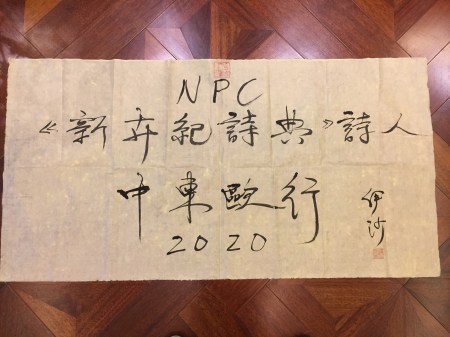 NPC
《新世紀詩典》詩人
中東歐行
2020
伊沙